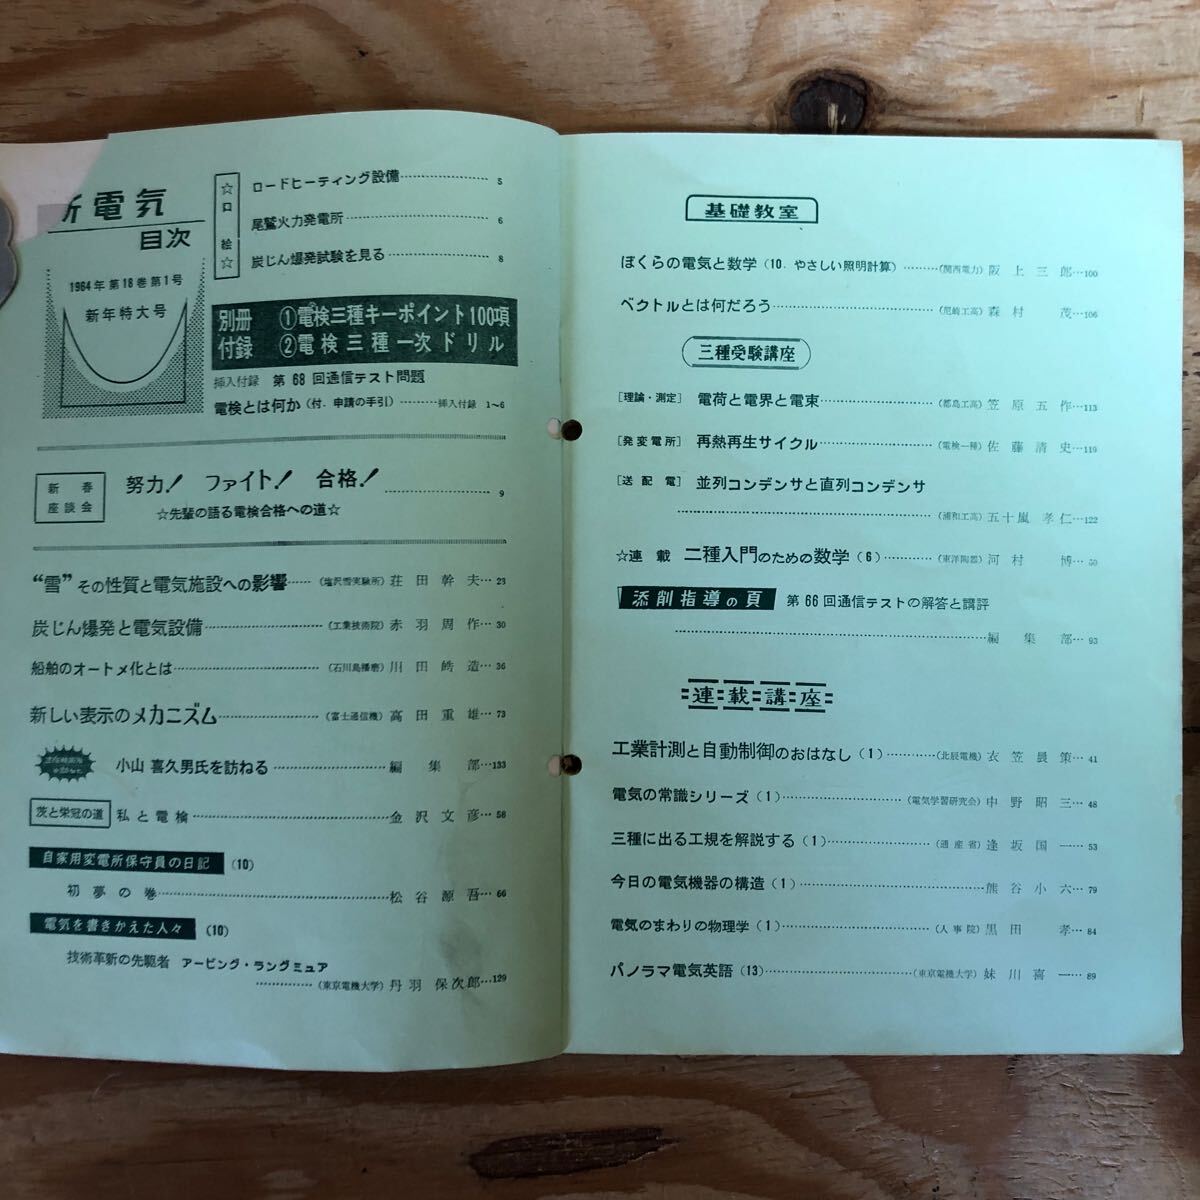 新電気
目次
1964年第18巻第1号
新年特大号
☆口絵☆
ロードヒーティング設備 5
尾鷲火力発電所 6
炭じん爆発試験を見る 8
別冊付録
①電検三種キーポイント100項
②電検三種一次ドリル
挿入付録 第68回通信テスト問題
電検とは何か(付.申請の手引) 挿入付録 1〜6
新春座談会
努力! ファイト! 合格! 9
☆先輩の語る電検合格への道☆
“雪”その性質と電気施設への影響 (塩沢雪実験所) 荘田幹夫 23
炭じん爆発と電気設備 (工業技術院) 赤羽周作 30
船舶のオートメ化とは (石川島播磨) 川田皓造 36
新しい表示のメカニズム (富士通信機) 高田重雄 73
小山喜久男氏を訪ねる 編集部 133
茨と栄冠の道 私と電検 金沢文彦 58
自家用変電所保守員の日記 (10)
初夢の巻 松谷源吾 66
電気を書きかえた人々 (10)
技術革新の先駆者 アービング・ラングミュア
(東京電機大学) 丹羽保次郎 129
基礎教室
ぼくらの電気と数学(10. やさしい照明計算) (関西電力) 阪上三郎 100
ベクトルとは何だろう (尼崎工高) 森村茂 106
三種受験講座
[理論・測定] 電荷と電界と電束 (都島工高) 笠原五作 113
[発変電所] 再熱再生サイクル (電検一種) 佐藤清史 119
[送配電] 並列コンデンサと直列コンデンサ
(浦和工高) 五十嵐孝仁 122
☆連載 二種入門のための数学(6) (東洋陶器) 河村博 50
添削指導の頁 第66回通信テストの解答と講評
編集部 93
連載講座
工業計測と自動制御のおはなし(1) (北辰電機) 衣笠晨策 41
電気の常識シリーズ(1) (電気学習研究会) 中野昭三 48
三種に出る工規を解説する(1) (通産省) 逢坂国一 53
今日の電気機器の構造(1) 熊谷小六 79
電気のまわりの物理学(1) (人事院) 黒田孝 84
パノラマ電気英語(13) (東京電機大学) 妹川喜一 89